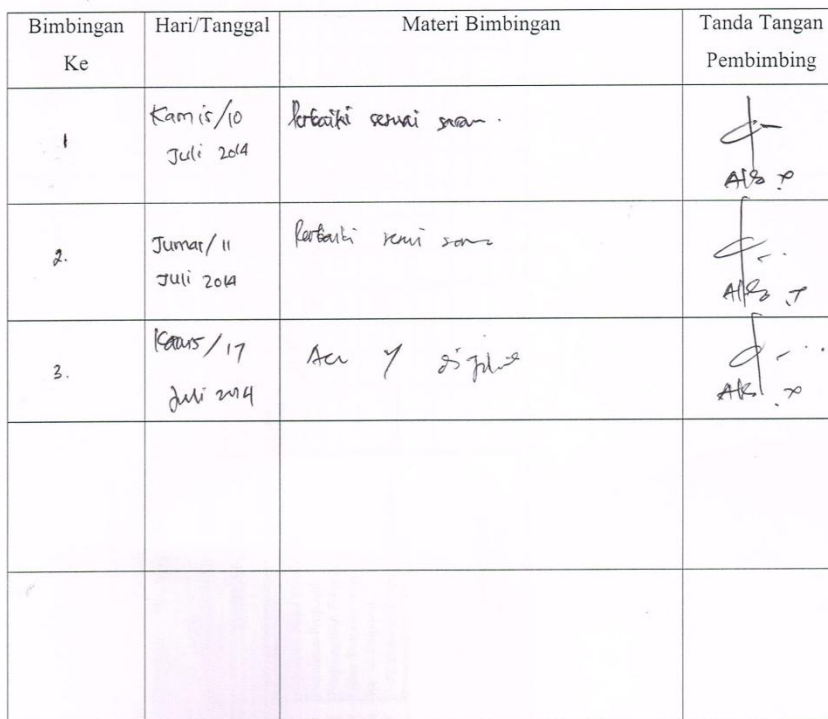 Bimbingan Ke
Hari/Tanggal
Materi Bimbingan
Tanda Tangan Pembimbing
1
Kamis/10
Juli 2014
Perbaiki sesuai saran.
2.
Jumat/11
Juli 2014
Perbaiki sesuai saran
3.
Kamis/17
Juli 2014
Acc